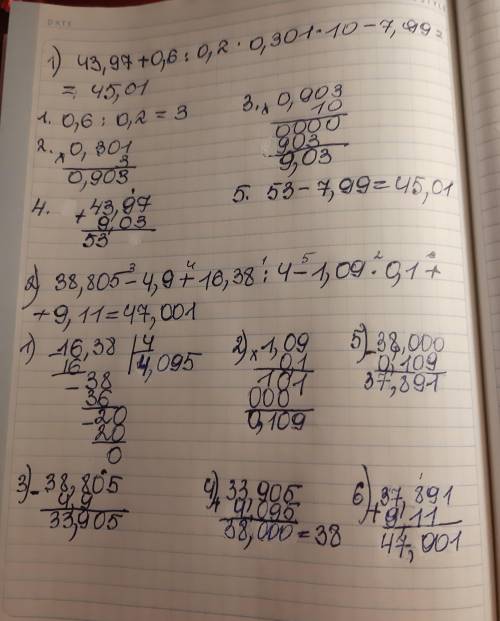 DATE
1) 43,97 + 0,6 : 0,2 · 0,301 · 10 − 7,99 =
= 45,01
1. 0,6 : 0,2 = 3
2. × 0,301
3
0,903
3. × 0,903
10
0000
903
9,03
4. + 43,97
9,03
53
5. 53 − 7,99 = 45,01
2) 38,805 − 4,9 + 16,38 : 4 − 1,09 · 0,1 +
+ 9,11 = 47,001
1) − 16,38 | 4
16 | 4,095
− 38
36
− 20
20
0
2) × 1,09
01
101
000
0,109
5) − 38,000
0,109
37,891
3) − 38,805
4 9
33,905
4) + 33,905
9,095
38,000 = 38
6) + 37,891
9,11
47,001